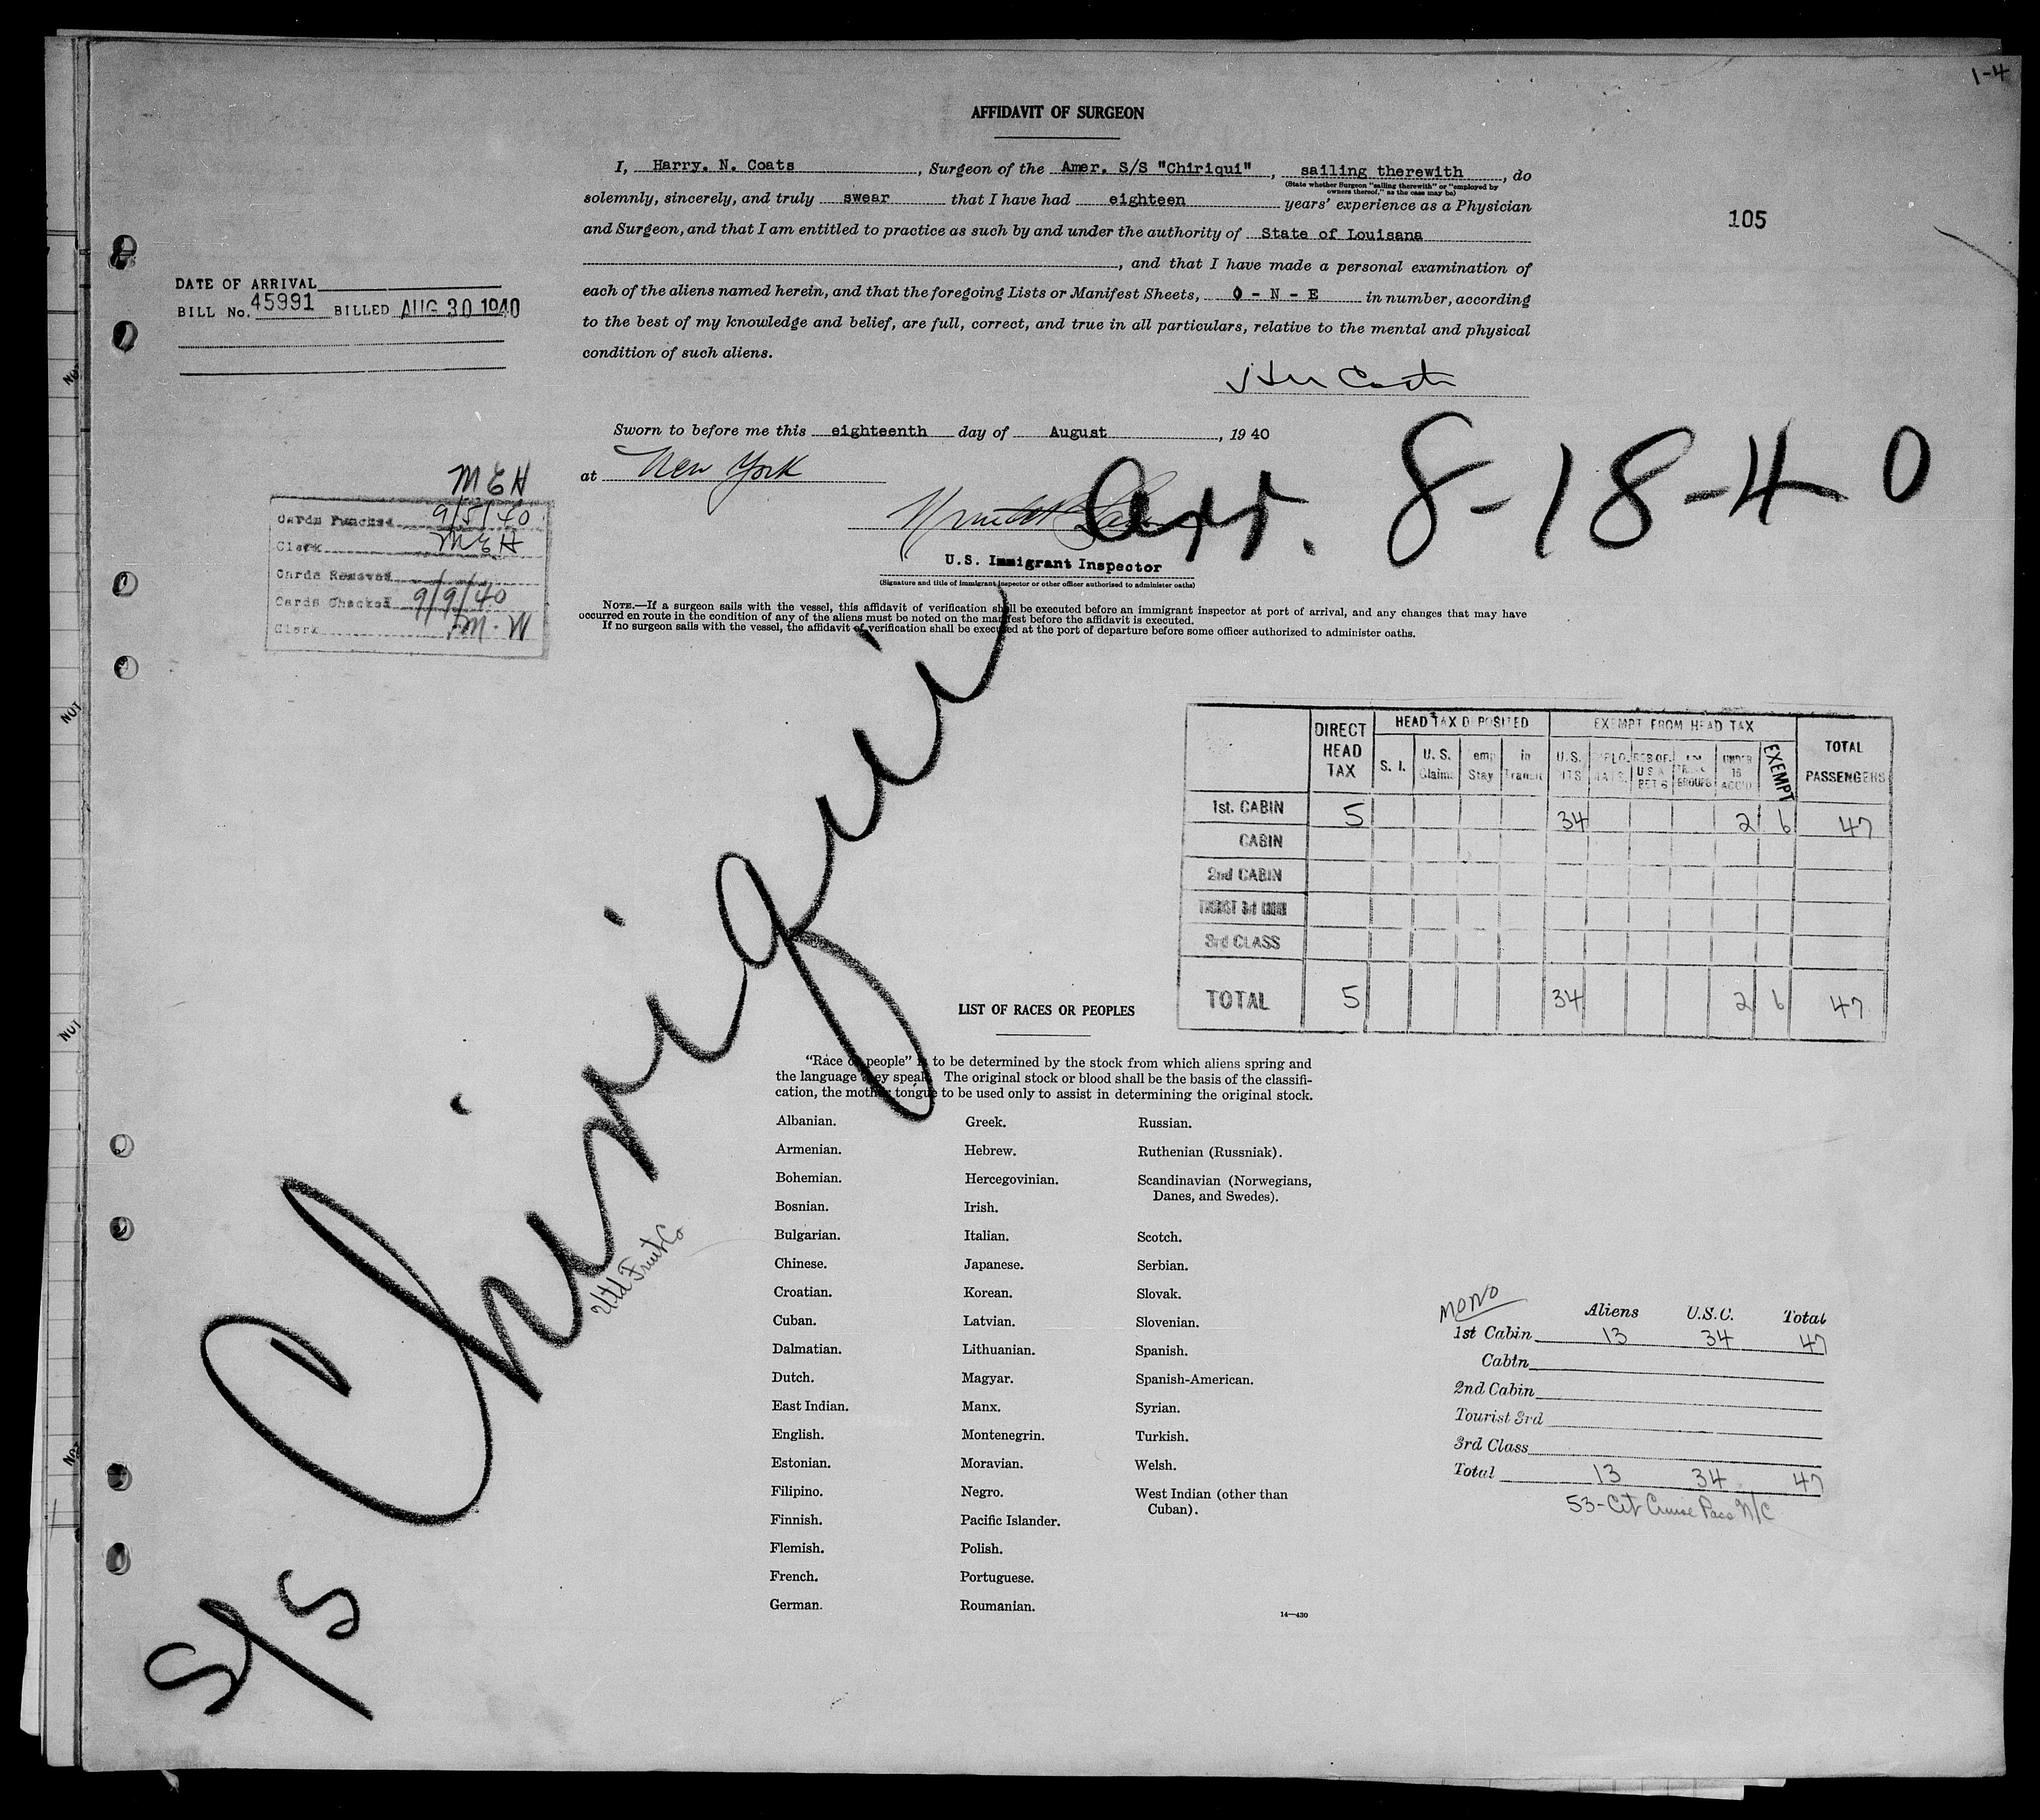 1-4
AFFIDAVIT OF SURGEON
I, Harry. N. Coats , Surgeon of the Amer. S/S "Chiriqui" , sailing therewith , do
(State whether Surgeon "sailing therewith" or "employed by
owners thereof," as the case may be)
solemnly, sincerely, and truly swear that I have had eighteen years' experience as a Physician
and Surgeon, and that I am entitled to practice as such by and under the authority of State of Louisana
, and that I have made a personal examination of
each of the aliens named herein, and that the foregoing Lists or Manifest Sheets, O - N - E in number, according
to the best of my knowledge and belief, are full, correct, and true in all particulars, relative to the mental and physical
condition of such aliens.
105
DATE OF ARRIVAL
BILL No. 45991 BILLED AUG 30 1940
Sworn to before me this eighteenth day of August , 19 40
at New York
Arr. 8-18-40
U.S. Immigrant Inspector
(Signature and title of immigrant inspector or other officer authorized to administer oaths)
MEH
Cards Punched 9/5/40
Clerk MEH
Cards Removed
Cards Checked 9/9/40
Clerk M.W
NOTE.—If a surgeon sails with the vessel, this affidavit of verification shall be executed before an immigrant inspector at port of arrival, and any changes that may have
occurred en route in the condition of any of the aliens must be noted on the manifest before the affidavit is executed.
If no surgeon sails with the vessel, the affidavit of verification shall be executed at the port of departure before some officer authorized to administer oaths.
DIRECT HEAD TAX
HEAD TAX DEPOSITED
S. I. U.S. Claims Temp Stay in Transit
EXEMPT FROM HEAD TAX
U.S. UNDER 16 ACC'D EXEMPT
TOTAL PASSENGERS
1st. CABIN 5 34 2 6 47
CABIN
2nd CABIN
TOURIST 3rd CABIN
3rd CLASS
TOTAL 5 34 2 6 47
S/S Chiriqui
Utd Fruit Co
LIST OF RACES OR PEOPLES
"Race or people" is to be determined by the stock from which aliens spring and
the language they speak. The original stock or blood shall be the basis of the classifi-
cation, the mother tongue to be used only to assist in determining the original stock.
Albanian.
Armenian.
Bohemian.
Bosnian.
Bulgarian.
Chinese.
Croatian.
Cuban.
Dalmatian.
Dutch.
East Indian.
English.
Estonian.
Filipino.
Finnish.
Flemish.
French.
German.
Greek.
Hebrew.
Hercegovinian.
Irish.
Italian.
Japanese.
Korean.
Latvian.
Lithuanian.
Magyar.
Manx.
Montenegrin.
Moravian.
Negro.
Pacific Islander.
Polish.
Portuguese.
Roumanian.
Russian.
Ruthenian (Russniak).
Scandinavian (Norwegians,
Danes, and Swedes).
Scotch.
Serbian.
Slovak.
Slovenian.
Spanish.
Spanish-American.
Syrian.
Turkish.
Welsh.
West Indian (other than
Cuban).
14—430
MONO
Aliens U.S.C. Total
1st Cabin 13 34 47
Cabin
2nd Cabin
Tourist 3rd
3rd Class
Total 13 34 47
53-Cit Cruise Pass N/C